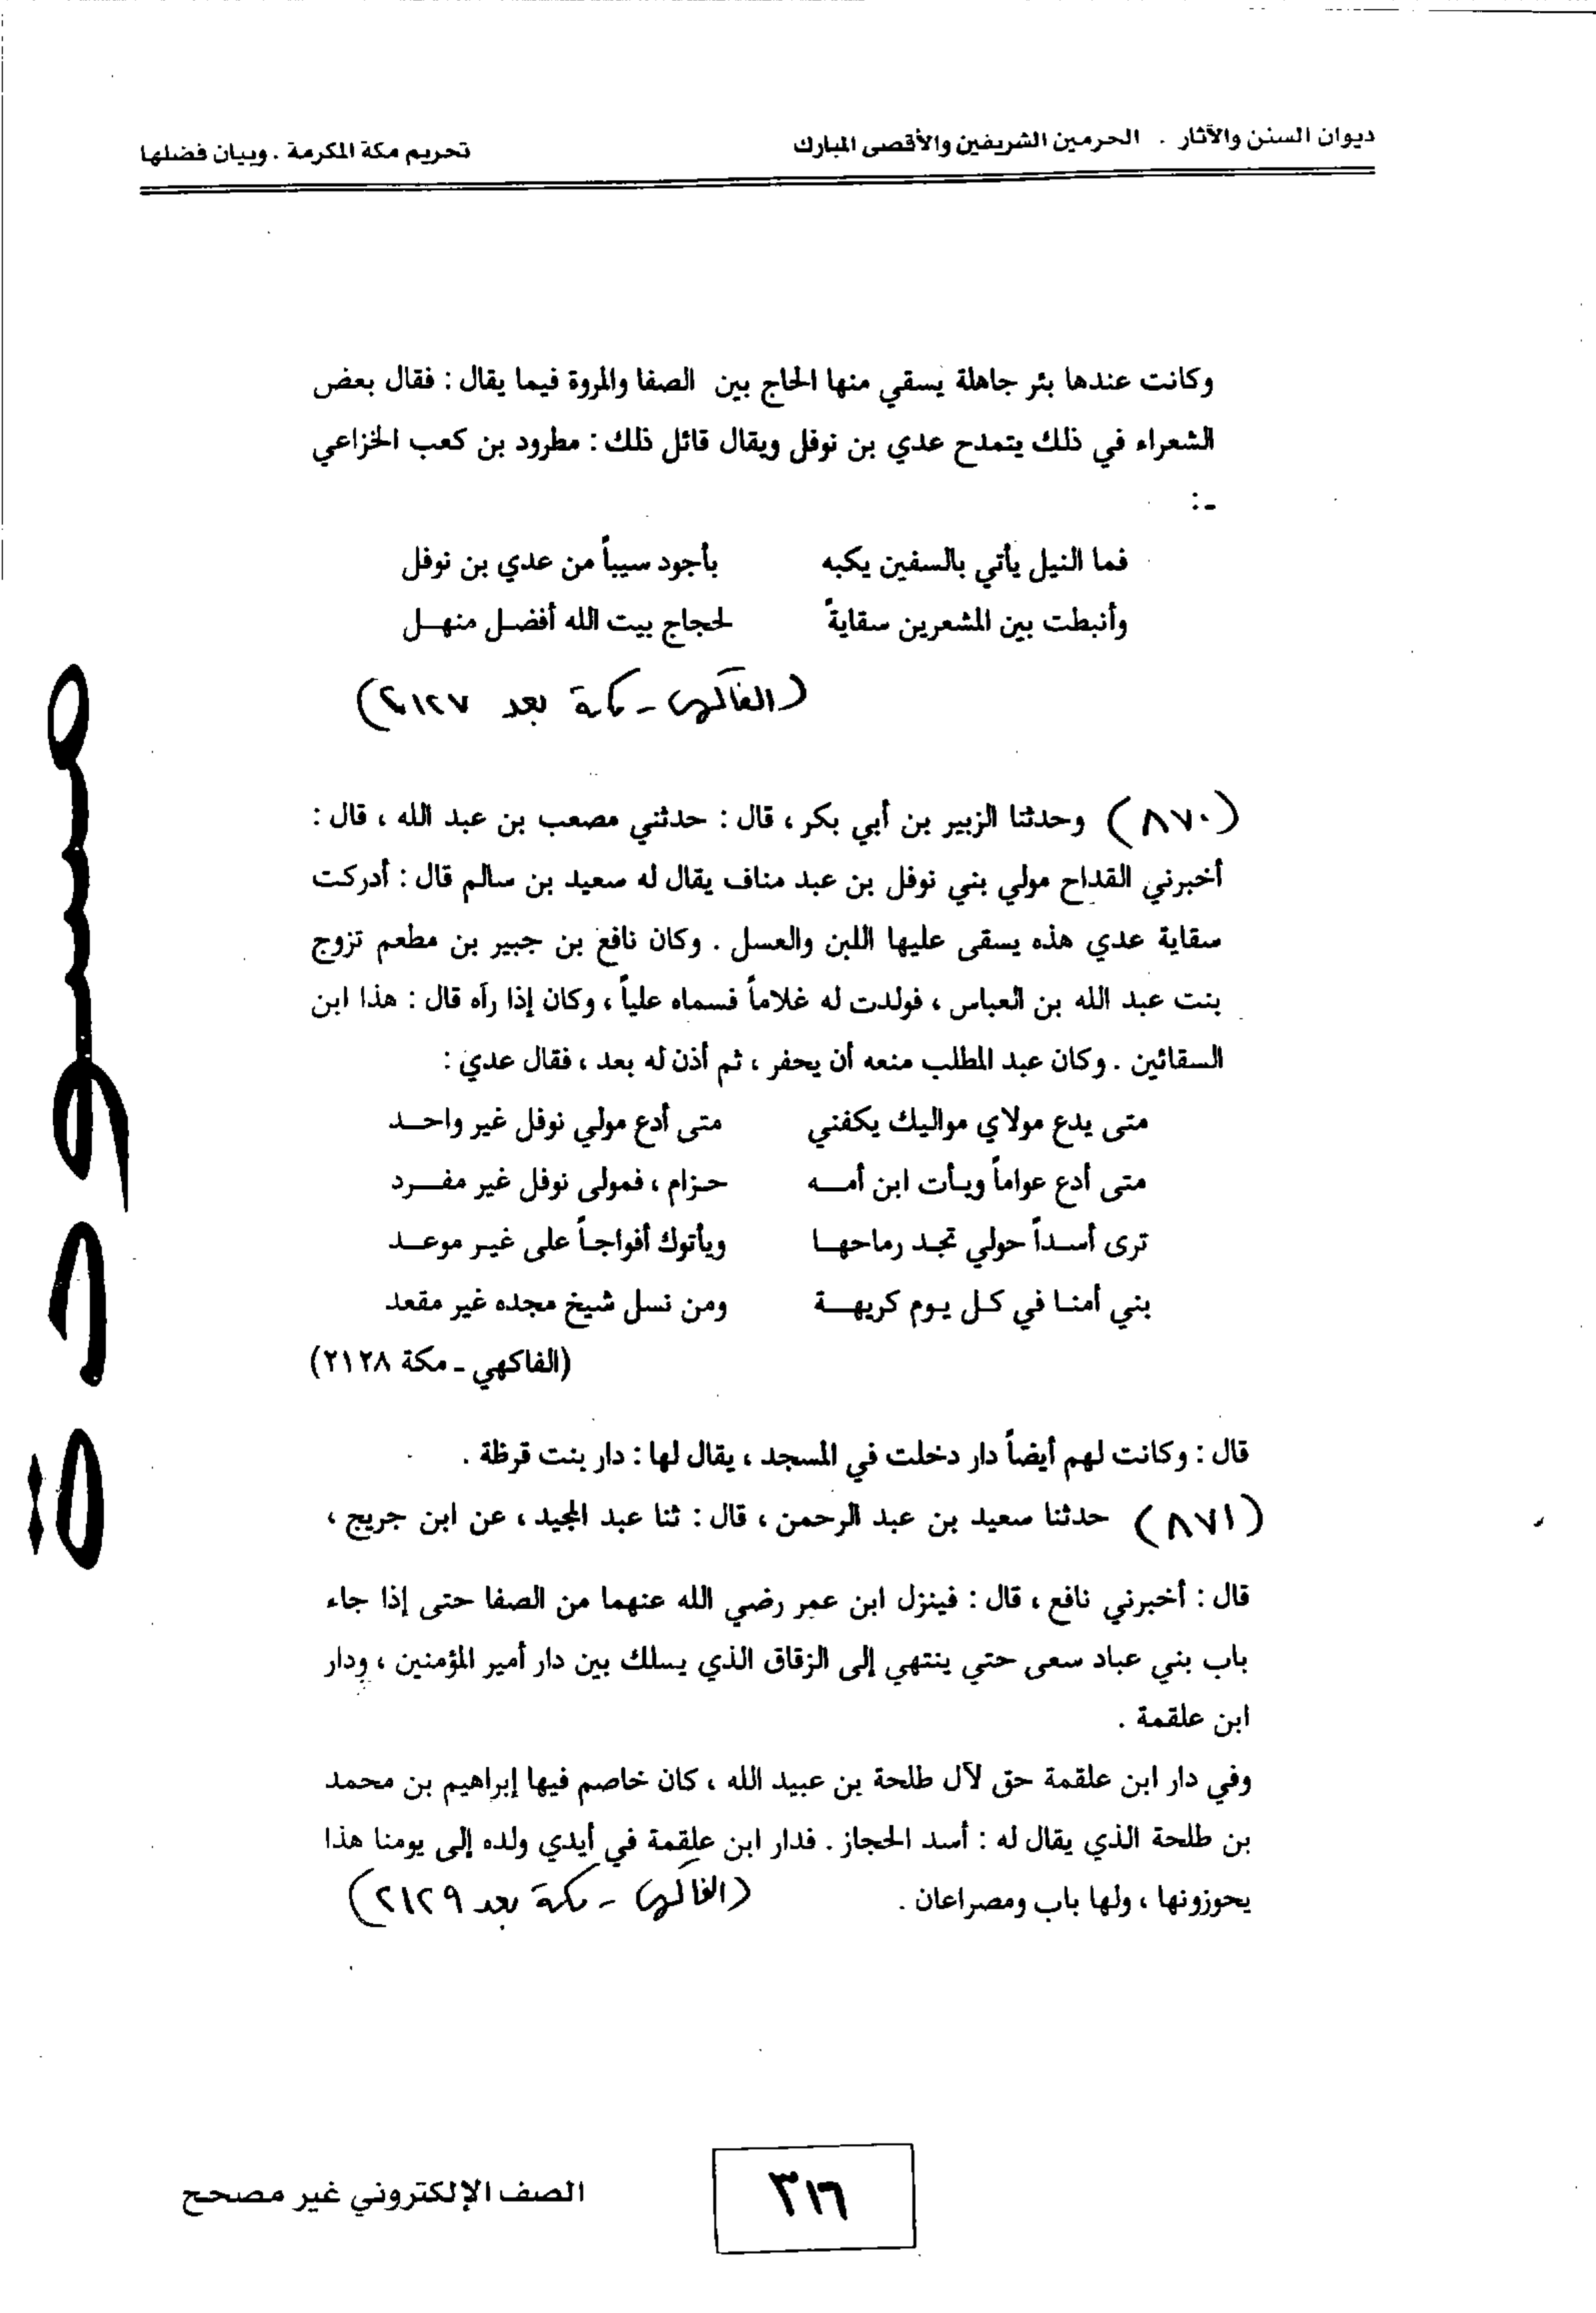 ديوان السنن والآثار . الحرمين الشريفين والأقصى المبارك
تحريم مكة المكرمة . وبيان فضلها
وكانت عندها بئر جاهلة يسقي منها الحاج بين الصفا والمروة فيما يقال : فقال بعض
الشعراء في ذلك يتمدح عدي بن نوفل ويقال قائل ذلك : مطرود بن كعب الخزاعي
:-
فما النيل يأتي بالسفين يكبه بأجود سيباً من عدي بن نوفل
وأنبطت بين المشعرين سقايةً لحجاج بيت الله أفضل منهل
(الفاكهي - مكة بعد ٢١٢٧)
(٨٧٠) وحدثنا الزبير بن أبي بكر ، قال : حدثني مصعب بن عبد الله ، قال :
أخبرني القداح مولي بني نوفل بن عبد مناف يقال له سعيد بن سالم قال : أدركت
سقاية عدي هذه يسقى عليها اللبن والعسل . وكان نافع بن جبير بن مطعم تزوج
بنت عبد الله بن العباس ، فولدت له غلاماً فسماه علياً ، وكان إذا رآه قال : هذا ابن
السقائين . وكان عبد المطلب منعه أن يحفر ، ثم أذن له بعد ، فقال عدي :
متى يدع مولاي مواليك يكفني متى أدع مولي نوفل غير واحد
متى أدع عواماً ويأت ابن أمه حزام ، فمولى نوفل غير مفرد
ترى أسداً حولي تجد رماحها ويأتوك أفواجاً على غير موعد
بني أمنا في كل يوم كريهة ومن نسل شيخ مجده غير مقعد
(الفاكهي - مكة ٢١٢٨)
قال : وكانت لهم أيضاً دار دخلت في المسجد ، يقال لها : دار بنت قرظة .
(٨٧١) حدثنا سعيد بن عبد الرحمن ، قال : ثنا عبد المجيد ، عن ابن جريج ،
قال : أخبرني نافع ، قال : فينزل ابن عمر رضي الله عنهما من الصفا حتى إذا جاء
باب بني عباد سعى حتي ينتهي إلى الزقاق الذي يسلك بين دار أمير المؤمنين ، ودار
ابن علقمة .
وفي دار ابن علقمة حق لآل طلحة بن عبيد الله ، كان خاصم فيها إبراهيم بن محمد
بن طلحة الذي يقال له : أسد الحجاز . فدار ابن علقمة في أيدي ولده إلى يومنا هذا
يحوزونها ، ولها باب ومصراعان . (الفاكهي - مكة بعد ٢١٢٩)
مسودة
٣١٦
الصف الإلكتروني غير مصحح